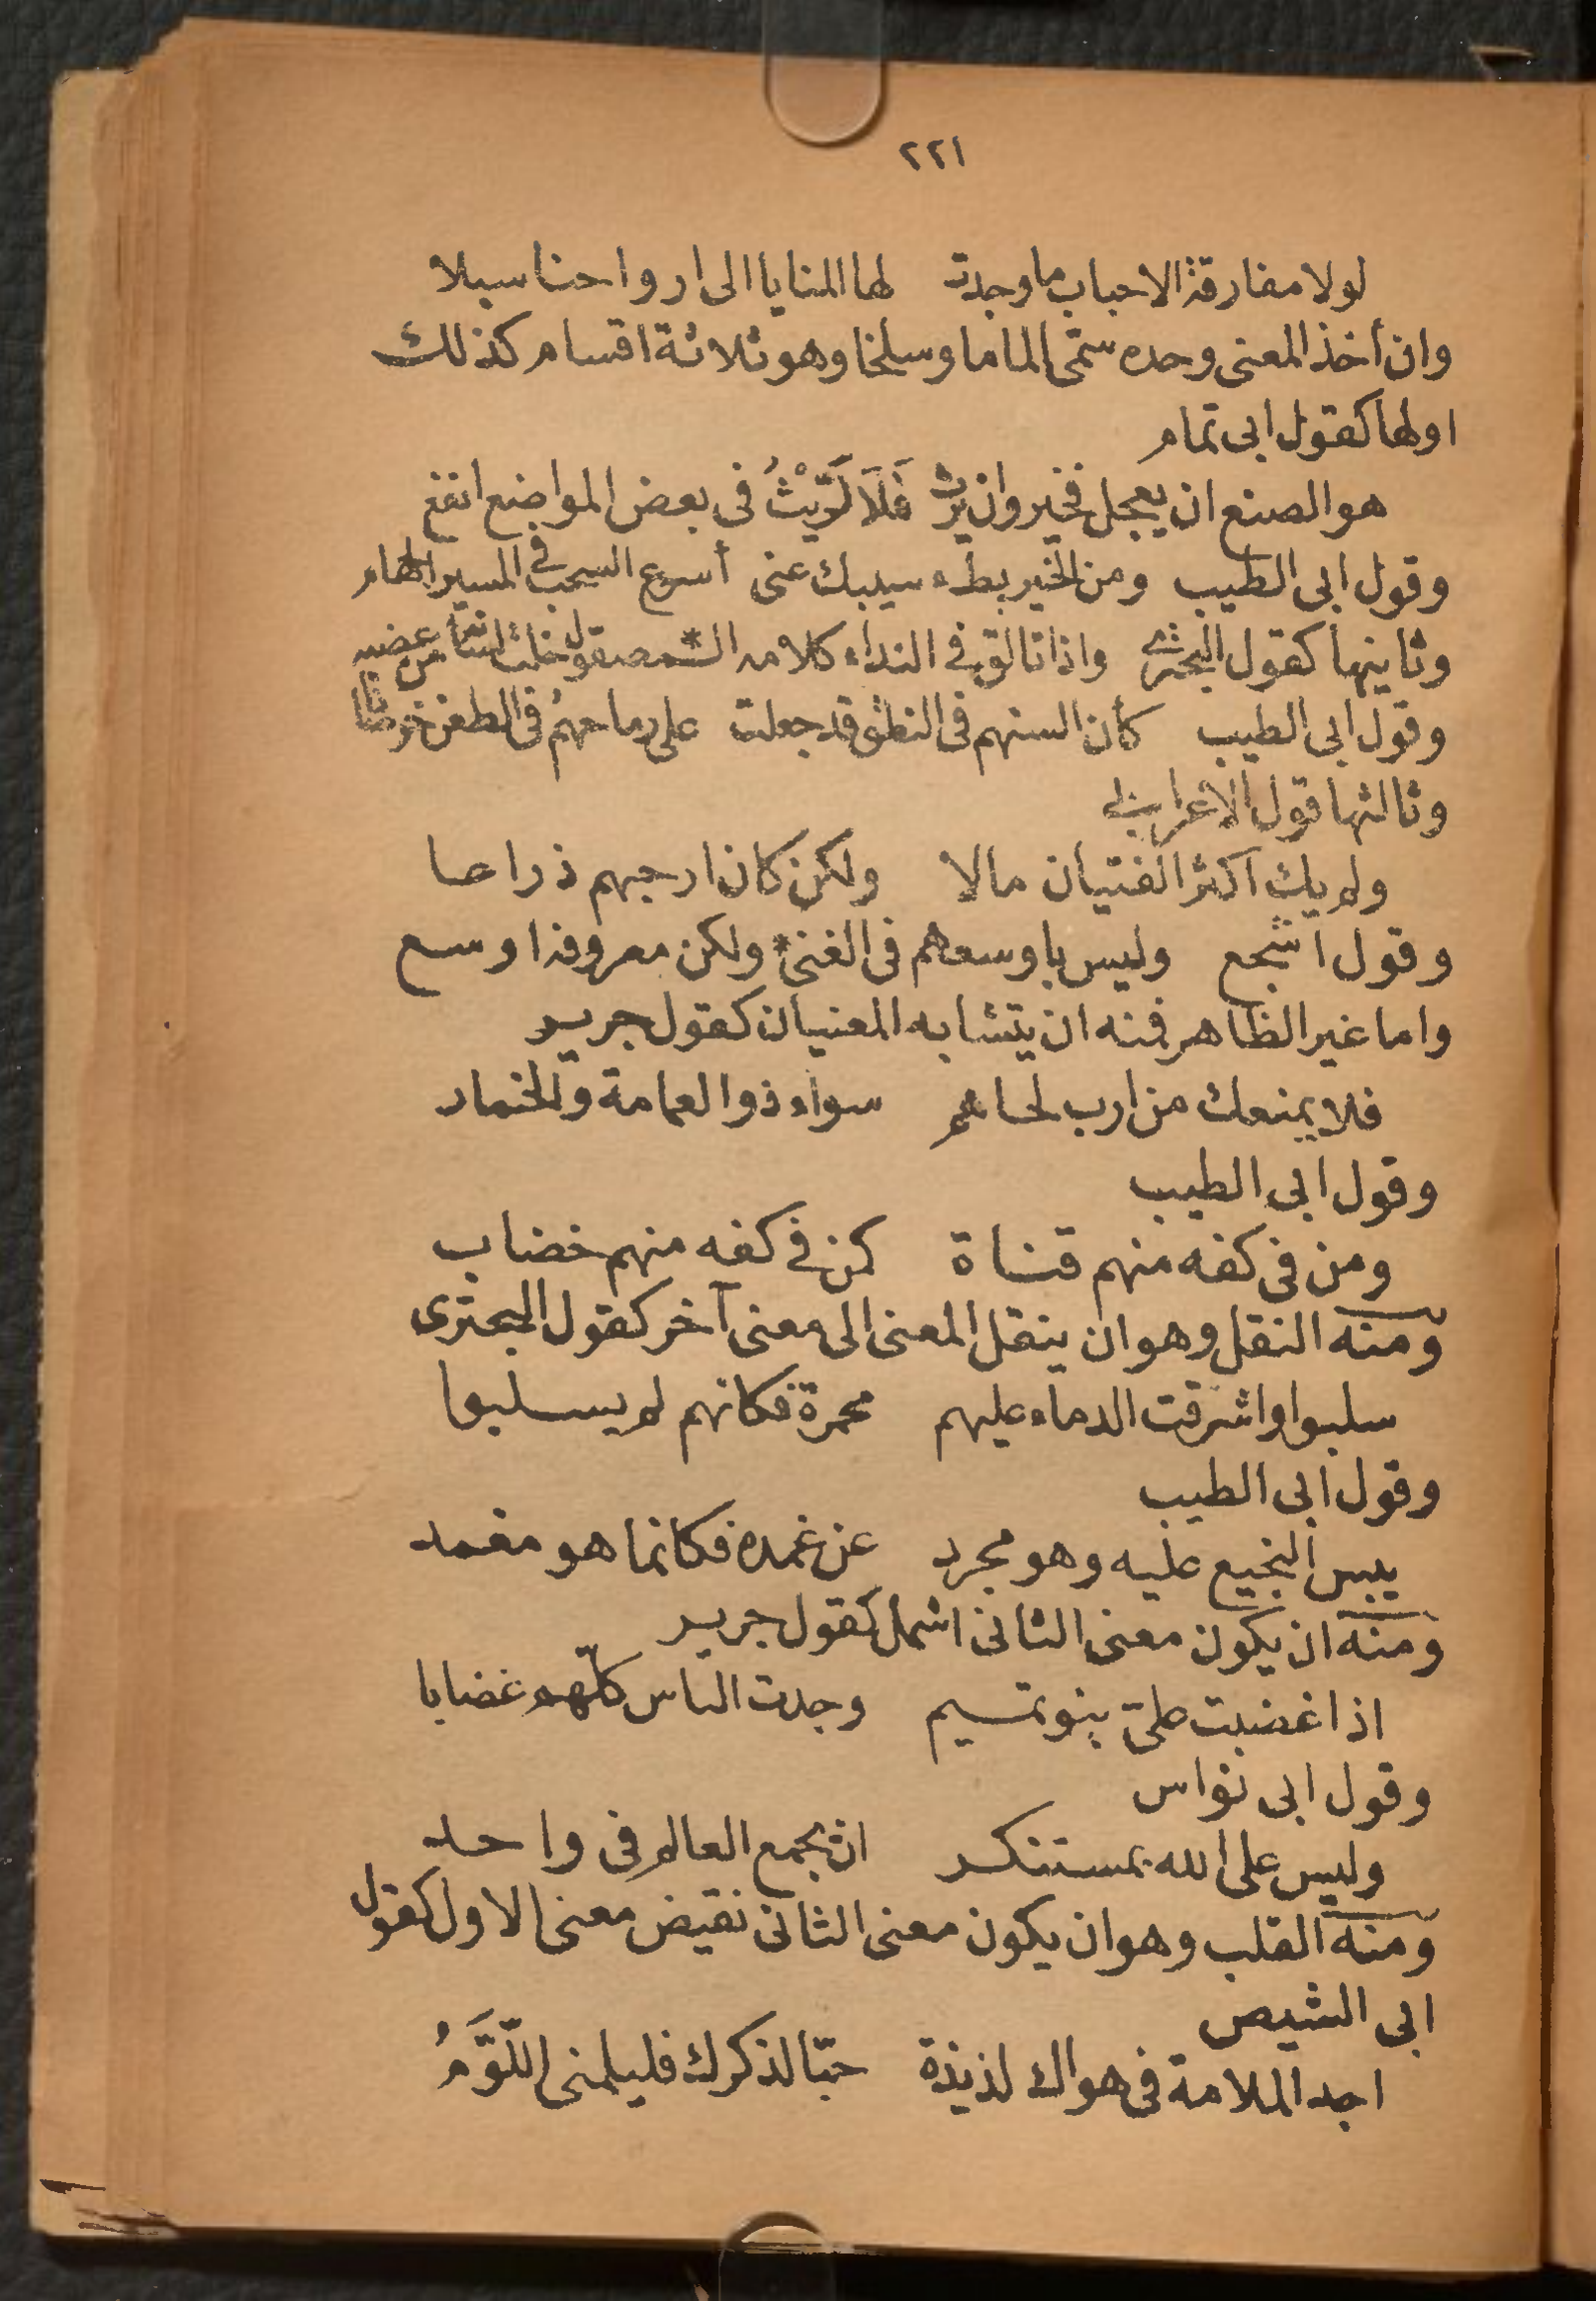 ٢٢١
لولا مفارقة الاحباب ما وجدت لها المنايا الى ارواحنا سبلا
وان أخذ المعنى وحده سمّى الماما وسلخا وهو ثلاثة اقسام كذلك
اولها كقول ابى تمام
هو الصنع ان يعجل فخير وان يرث فَلَلرَّيْثُ فى بعض المواضع انفع
وقول ابى الطيب ومن الخير بطء سيبك عنى أسرع السحب فى المسير الجهام
وثانيها كقول البحترى واذا تالق فى النداء كلامه الـ*ـمصقول خلت لسانه من عضبه
وقول ابى الطيب كأن السنهم فى النطق قد جعلت على رماحهمُ فى الطعن خرصانا
وثالثها قول الاعرابى
ولم يك اكثر الفتيان مالا ولكن كان ارحبهم ذراعا
وقول اشجع وليس باوسعهم فى الغنى * ولكن معروفه اوسع
واما غير الظاهر فمنه ان يتشابه المعنيان كقول جرير
فلا يمنعك من ارب لحاهم سواء ذو العمامة والخمار
وقول ابى الطيب
ومن فى كفه منهم قناة كمن فى كفه منهم خضاب
ومنه النقل وهو ان ينقل المعنى الى معنى آخر كقول البحترى
سلبوا واشرقت الدماء عليهم محمرة فكانهم لم يسلبوا
وقول ابى الطيب
يبس النجيع عليه وهو مجرد عن غمده فكانما هو مغمد
ومنه ان يكون معنى الثانى اشمل كقول جرير
اذا غضبت علىّ بنو تميم وجدت الناس كلّهم غضابا
وقول ابى نواس
وليس على الله بمستنكر ان يجمع العالم فى واحد
ومنه القلب وهو ان يكون معنى الثانى نقيض معنى الاول كقول
ابى الشيص
اجد الملامة فى هواك لذيذة حبّا لذكرك فليلمنى اللّوَّمُ